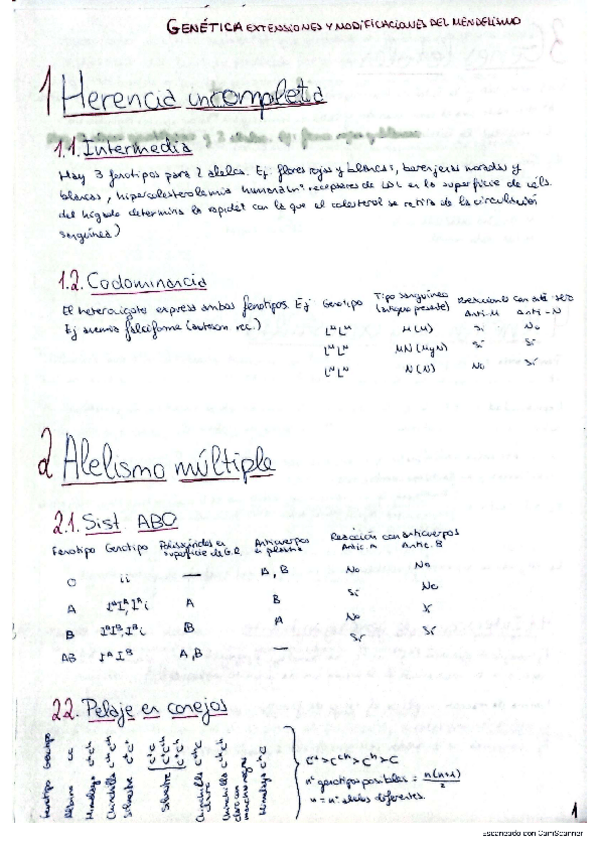 GENÉTICA EXTENSIONES Y MODIFICACIONES DEL MENDELISMO
1 Herencia incompleta
1.1. Intermedia
Hay 3 fenotipos para 2 alelos. Ej flores rojas y blancas, berenjenas moradas y
blancas, hipercolesterolemia humana (nº receptores de LDL en la superficie de céls.
del hígado determina la rapidez con la que el colesterol se retira de la circulación
sanguínea)
1.2. Codominancia
El heterocigoto expresa ambos fenotipos. Ej Genotipo Tipo sanguíneo (antígeno presente) Reacciona con anti Anti-M Anti-N
Ej anemia falciforme (autosom rec.) LᴹLᴹ M (M) Sí No
LᴹLᴺ MN (M y N) Sí Sí
LᴺLᴺ N (N) No Sí
2 Alelismo múltiple
2.1. Sist ABO
Fenotipo Genotipo Polisacáridos en superficie de G.R. Anticuerpos en plasma Reacción con anticuerpos Antic. A Antic. B
O ii — A, B No No
A IᴬIᴬ, Iᴬi A B Sí No
B IᴮIᴮ, Iᴮi B A No Sí
AB IᴬIᴮ A, B — Sí Sí
2.2. Pelaje en conejos
Fenotipo Genotipo
Albino cc
Himalaya
Chinchilla
Silvestre
Silvestre
Chinchilla claro
Chinchilla claro con manchas negras
Himalaya cʰc
>cᶜʰ>cʰ>c
nº genotipos posibles = n(n+1)/2
n = nº alelos diferentes.
1
Escaneado con CamScanner